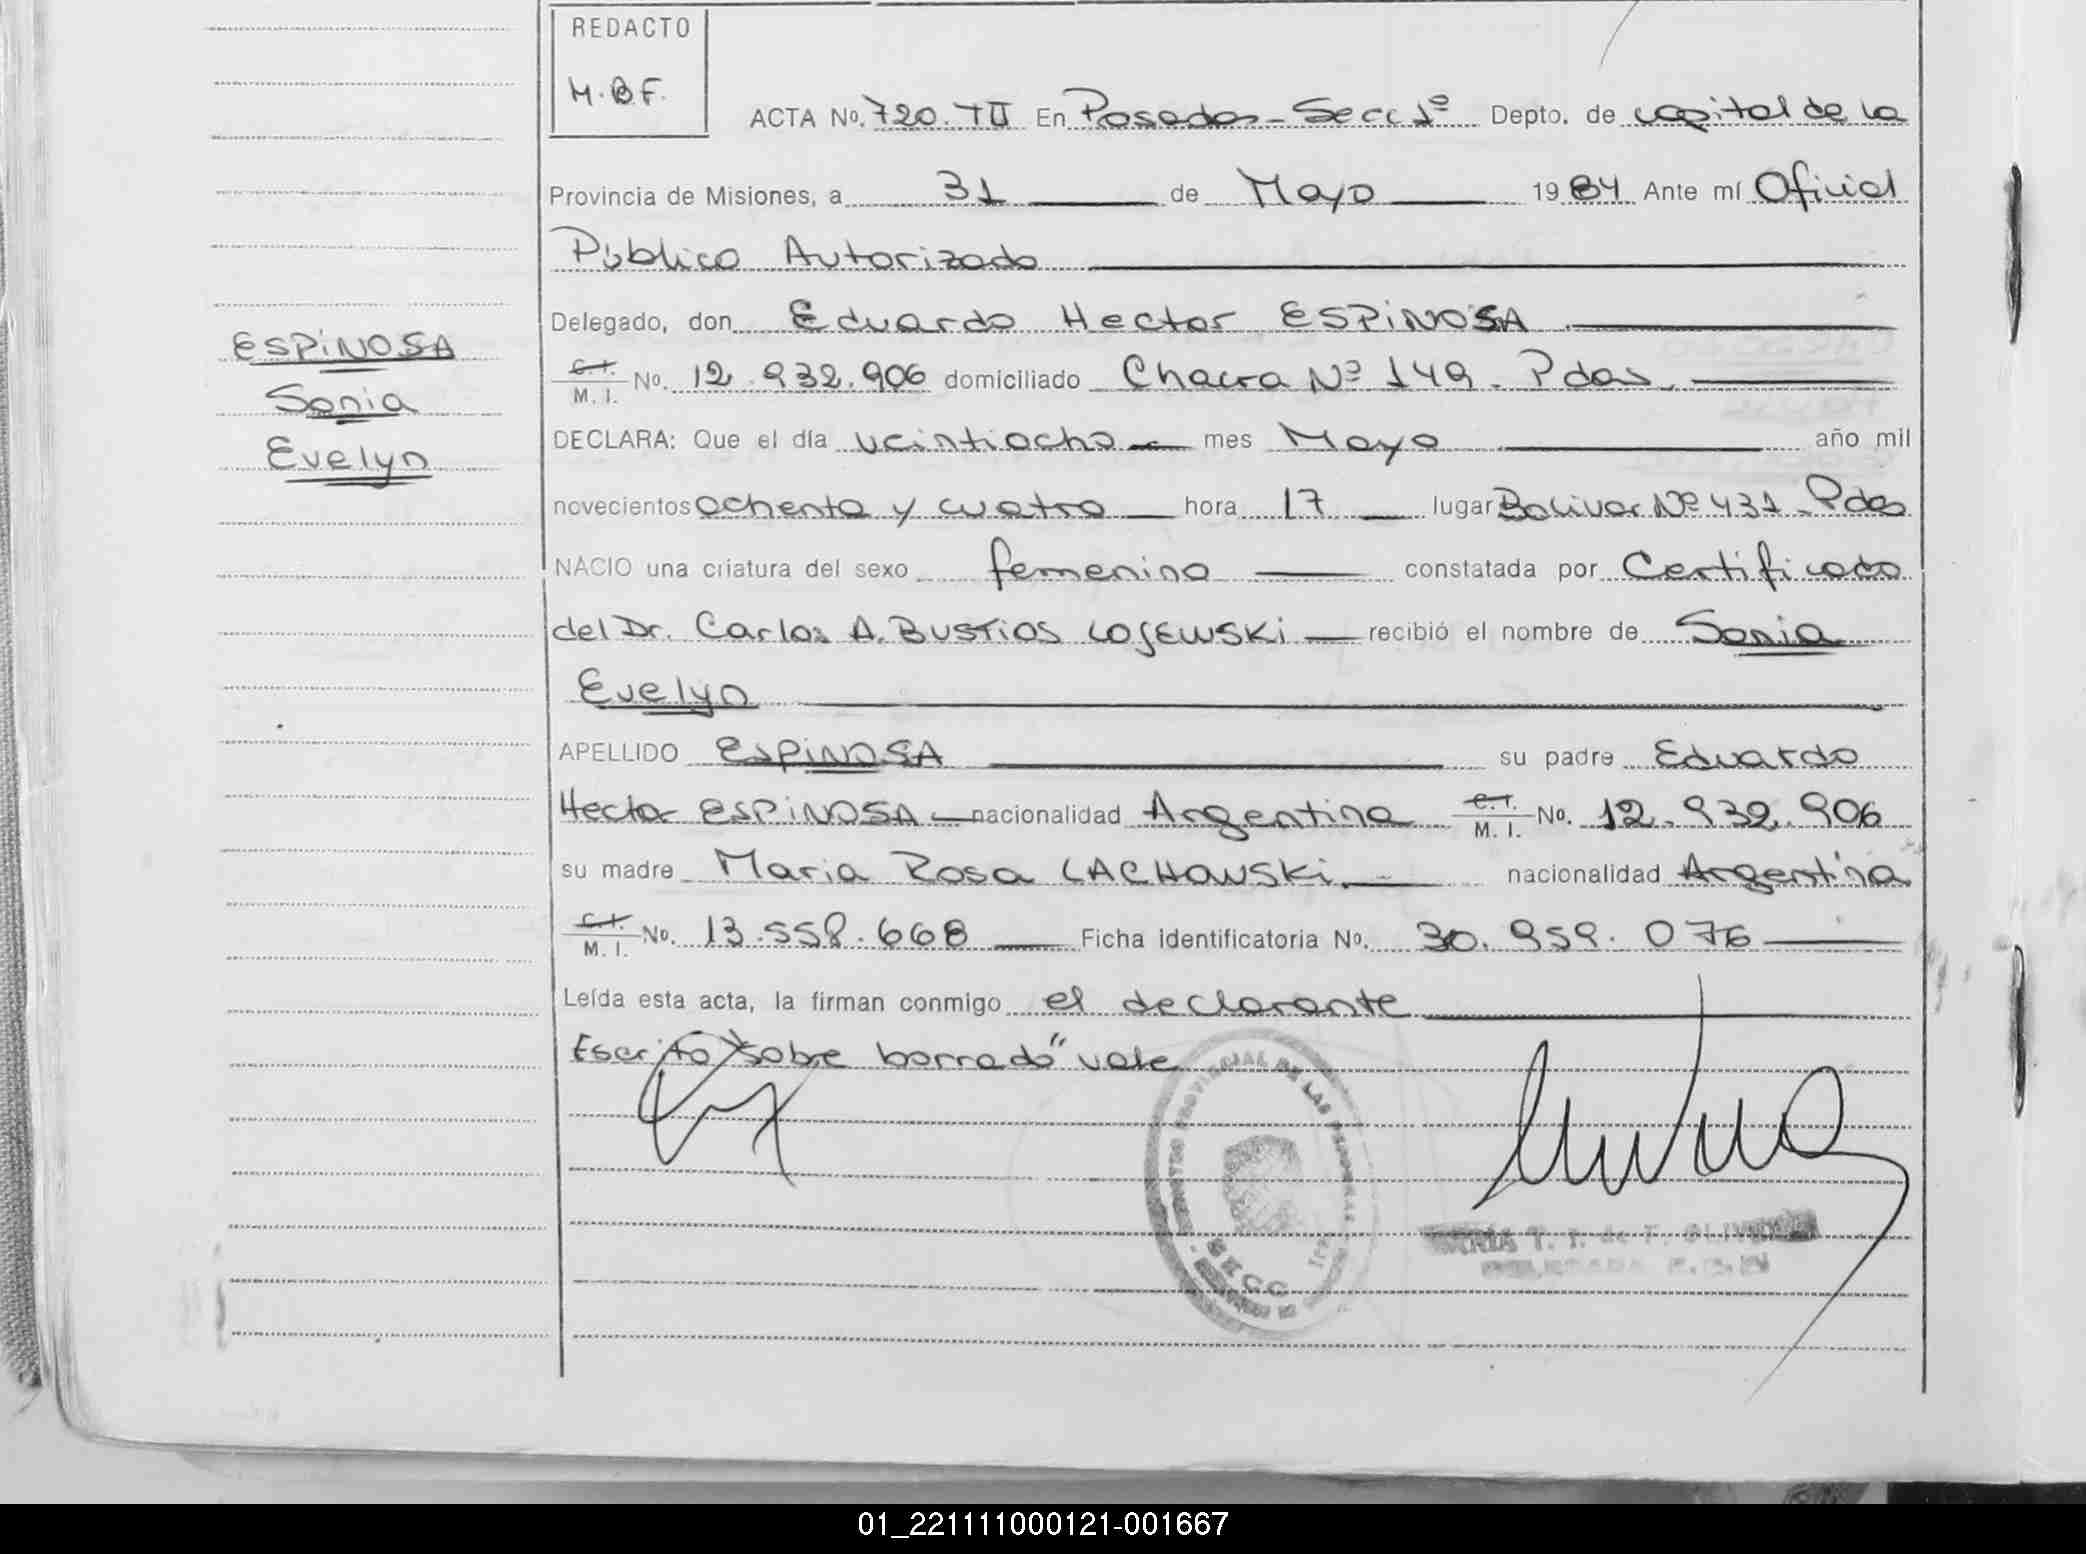 REDACTO
M.B.F.
ACTA No. 720. TII En Posadas - Secc 1º Depto. de capital de la
Provincia de Misiones, a 31 de Mayo 1984 Ante mí Oficial
Público Autorizado
Delegado, don Eduardo Hector ESPINOSA
C.I.
M. I. No. 12.932.906 domiciliado Chacra Nº 149 - Pdas
DECLARA: Que el día veintiocho mes Mayo año mil
novecientos ochenta y cuatro hora 17 lugar Bolivar Nº 431 - Pdas
NACIO una criatura del sexo femenino constatada por Certificado
del Dr. Carlos A. BUSTIOS LOJEWSKI recibió el nombre de Sonia
Evelyn
APELLIDO ESPINOSA su padre Eduardo
Hector ESPINOSA nacionalidad Argentina C.I.
M. I. No. 12.932.906
su madre Maria Rosa LACHOWSKI nacionalidad Argentina
C.I.
M. I. No. 13.558.668 Ficha identificatoria No. 30.959.076
Leída esta acta, la firman conmigo el declarante
Escrito "sobre borrado" vale
ESPINOSA
Sonia
Evelyn
PROVINCIAL DE LAS PERSONAS
SECC
MARIA T. T. de F. OLIVEIRA
01_221111000121-001667